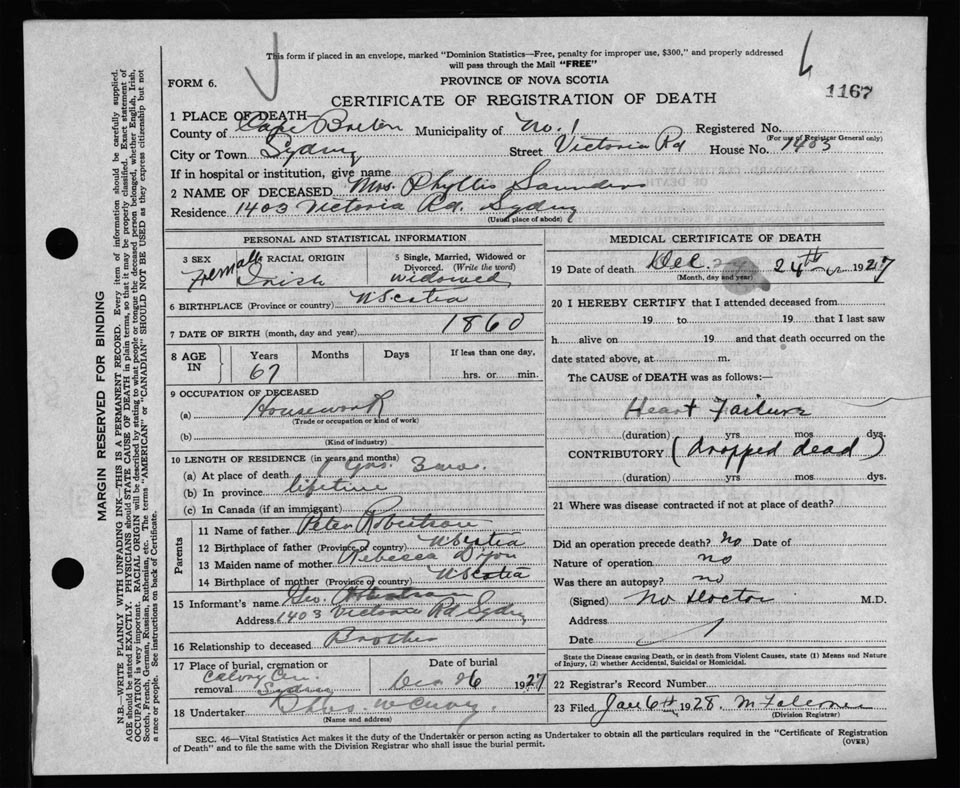 This form if placed in an envelope, marked "Dominion Statistics—Free, penalty for improper use, $300," and properly addressed
will pass through the Mail "FREE"
FORM 6.
PROVINCE OF NOVA SCOTIA
1167
CERTIFICATE OF REGISTRATION OF DEATH
1 PLACE OF DEATH—
County of Cape Breton Municipality of No. 1 Registered No.
(For use of Registrar General only)
City or Town Sydney Street Victoria Rd House No. 1403
If in hospital or institution, give name
2 NAME OF DECEASED Mrs. Phyllis Saunders
Residence 1403 Victoria Rd. Sydney
(Usual place of abode)
PERSONAL AND STATISTICAL INFORMATION
3 SEX Female
4 RACIAL ORIGIN Irish
5 Single, Married, Widowed or Divorced. (Write the word) Widowed
6 BIRTHPLACE (Province or country) N Scotia
7 DATE OF BIRTH (month, day and year) 1860
8 AGE IN Years 67 Months Days If less than one day, hrs. or min.
9 OCCUPATION OF DECEASED
(a) Housework
(Trade or occupation or kind of work)
(b)
(Kind of industry)
10 LENGTH OF RESIDENCE (in years and months)
(a) At place of death yrs. 3
(b) In province lifetime
(c) In Canada (if an immigrant)
Parents
11 Name of father Peter Robertson
12 Birthplace of father (Province or country) N Scotia
13 Maiden name of mother Rebecca
14 Birthplace of mother (Province or country) N Scotia
15 Informant's name Geo.
Address 1403 Victoria Rd Sydney
16 Relationship to deceased Brother
17 Place of burial, cremation or removal Calvary Cem. Sydney
Date of burial Dec 26 1927
18 Undertaker
(Name and address)
MEDICAL CERTIFICATE OF DEATH
19 Date of death Dec. 24th 1927
(Month, day and year)
20 I HEREBY CERTIFY that I attended deceased from
19 to 19 that I last saw
h alive on 19 and that death occurred on the
date stated above, at m.
The CAUSE of DEATH was as follows:—
Heart Failure
(duration) yrs mos dys.
CONTRIBUTORY (dropped dead)
(duration) yrs mos dys.
21 Where was disease contracted if not at place of death?
Did an operation precede death? no Date of
Nature of operation no
Was there an autopsy? no
(Signed) No Doctor M.D.
Address
Date
State the Disease causing Death, or in death from Violent Causes, state (1) Means and Nature
of Injury, (2) whether Accidental, Suicidal or Homicidal.
22 Registrar's Record Number
23 Filed Jan 6th 1928.
(Division Registrar)
SEC. 46—Vital Statistics Act makes it the duty of the Undertaker or person acting as Undertaker to obtain all the particulars required in the "Certificate of Registration
of Death" and to file the same with the Division Registrar who shall issue the burial permit.
(OVER)
MARGIN RESERVED FOR BINDING
N.B.—WRITE PLAINLY WITH UNFADING INK—THIS IS A PERMANENT RECORD. Every item of information should be carefully supplied.
AGE should be stated EXACTLY. PHYSICIANS should STATE CAUSE OF DEATH in plain terms, so that it may be properly classified. Exact statement of
OCCUPATION is very important. RACIAL ORIGIN will be described by stating to what people or tongue the deceased person belonged, whether English, Irish,
Scotch, French, German, Russian, Ruthenian, etc. The terms "AMERICAN" or "CANADIAN" SHOULD NOT BE USED as they express citizenship but not
a race or people. See instructions on back of Certificate.